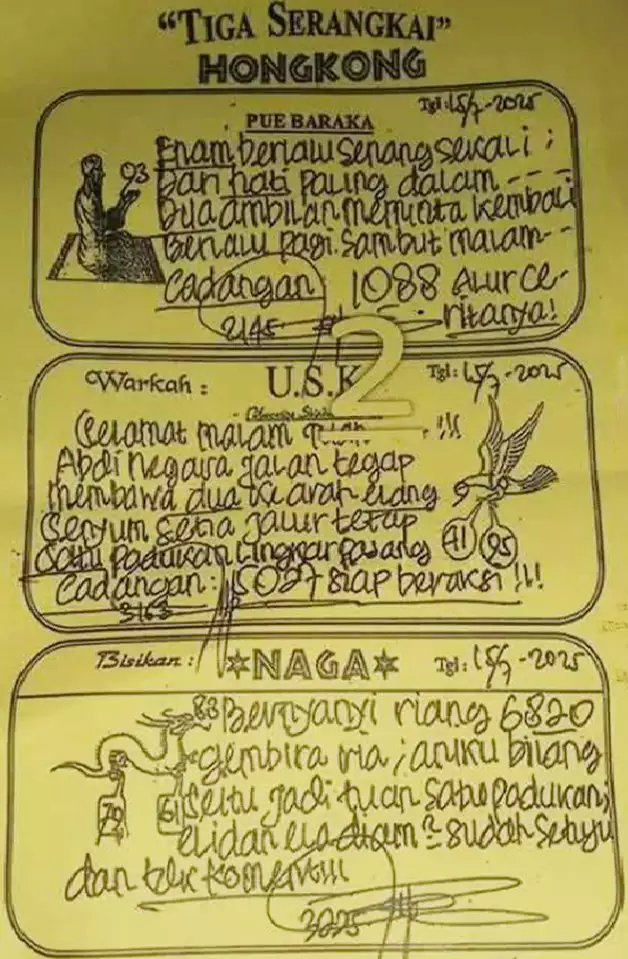 "TIGA SERANGKAI"
HONGKONG
Tgl: 15/7-2025
PUE BARAKA
93
Enam berlalu senang sekali;
Dari hati paling dalam ----
Dua ambilan meminta kembali
Berlalu pagi sambut malam--
Cadangan 1088 Alur Ce-
ritanya!
2145
2
Warkah: U.S.K Tgl: 15/7-2025
Selamat malam !!!
Abdi negara jalan tegap
membawa dua arah elang
Senyum setia jalur tetap
Satu padukan lingkar pasang
41 95
Cadangan: 5027 siap beraksi !!!
3163
Bisikan: NAGA Tgl: 15/7-2025
83 Bernyanyi riang 6820
gembira ria; aruku bilang
79 61
Seitu jadi tuan satu padukan;
diam? sudah setuju
dan tak komen!!!
3225